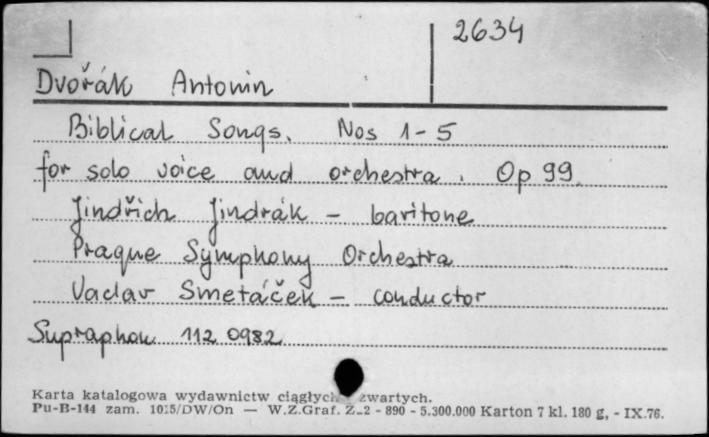 2634
Dvořák Antonin
Biblical Songs. Nos 1-5
for solo voice and orchestra. Op 99
Jindřich Jindrák - baritone
Prague Symphony Orchestra
Vaclav Smetáček - conductor
Supraphon 112 0982
Karta katalogowa wydawnictw ciągłych zwartych.
Pu-B-144 zam. 1015/DW/On — W.Z.Graf. Z-2 - 890 - 5.300.000 Karton 7 kl. 180 g, - IX.76.